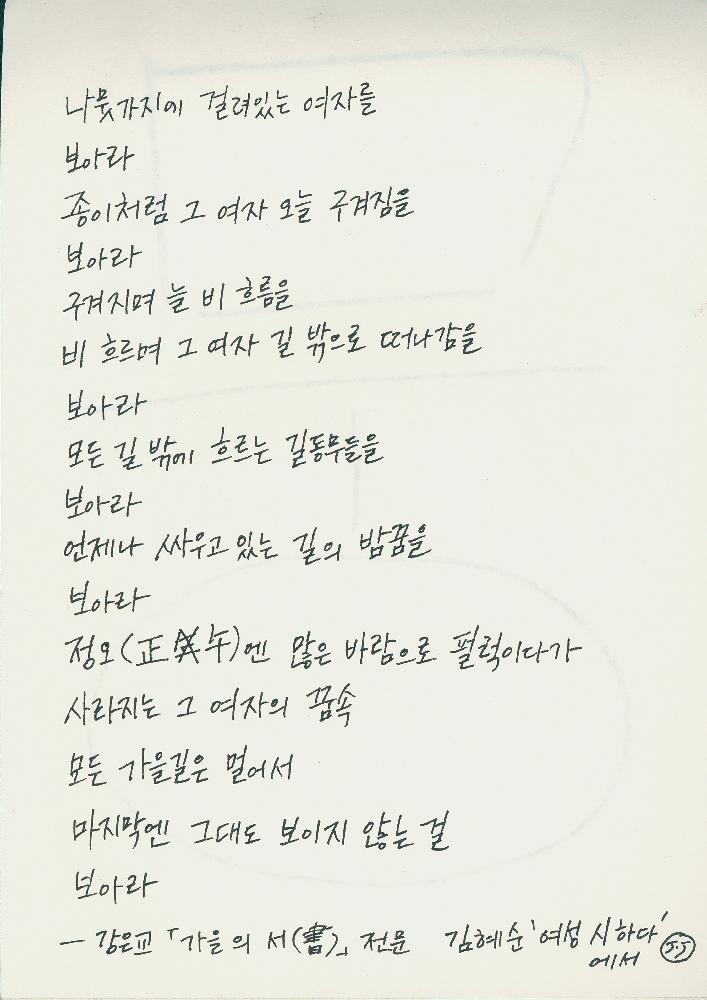 나뭇가지에 걸려있는 여자를
보아라
종이처럼 그 여자 오늘 구겨짐을
보아라
구겨지며 늘 비 흐름을
비 흐르며 그 여자 길 밖으로 떠나감을
보아라
모든 길 밖에 흐르는 길동무들을
보아라
언제나 싸우고 있는 길의 밤꿈을
보아라
정오(正午)엔 많은 바람으로 펄럭이다가
사라지는 그 여자의 꿈속
모든 가을길은 멀어서
마지막엔 그대도 보이지 않는 걸
보아라
— 강은교 「가을의 서(書)」 전문 김혜순 '여성 시하다'
에서 J.J